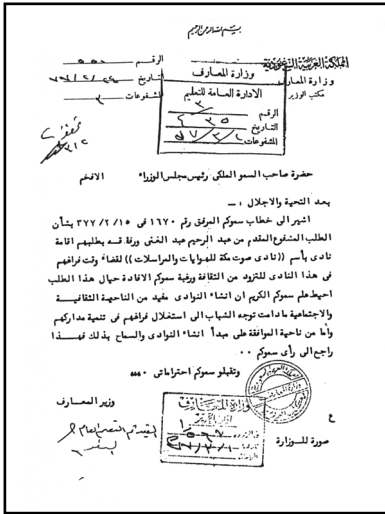 بسم الله الرحمن الرحيم
المملكة العربية السعودية
وزارة المعارف
مكتب الوزير
الرقم ٥٥٠
التاريخ
المشفوعات ٣
وزارة المعارف
الادارة العامة للتعليم
الرقم
التاريخ
المشفوعات
حضرة صاحب السمو الملكي رئيس مجلس الوزراء الافخم
بعد التحية والاجلال : ــ
اشير الى خطاب سموكم المرفق رقم ١٦٧٠ في ٣٧٧/٢/١٥ بشأن
الطلب المشفوع المقدم من عبد الرحيم عبد الغني ورفاقـه بطلبهم اقامة
نادي بأسم ((نادى صوت مكة للهوايات والمراسلات)) لقضاء وقت فراغهم
في هذا النادى للتزود من الثقافة ورغبة سموكم الافادة حيال هذا الطلب
احيط علم سموكم الكريم ان انشاء النوادى مفيد من الناحية الثقافيـــة
والاجتماعية ما دامت توجه الشباب الى استغلال فراغهم في تنمية مداركهم
وأما من ناحية الموافقة على مبدأ انشاء النوادى والسماح بذلك فهــــذا
راجع الى رأى سموكم ٠٠
وتقبلو سموكم احتراماتى
وزير المعـــارف
وزارة المعارف
صورة للــوزارة
ع